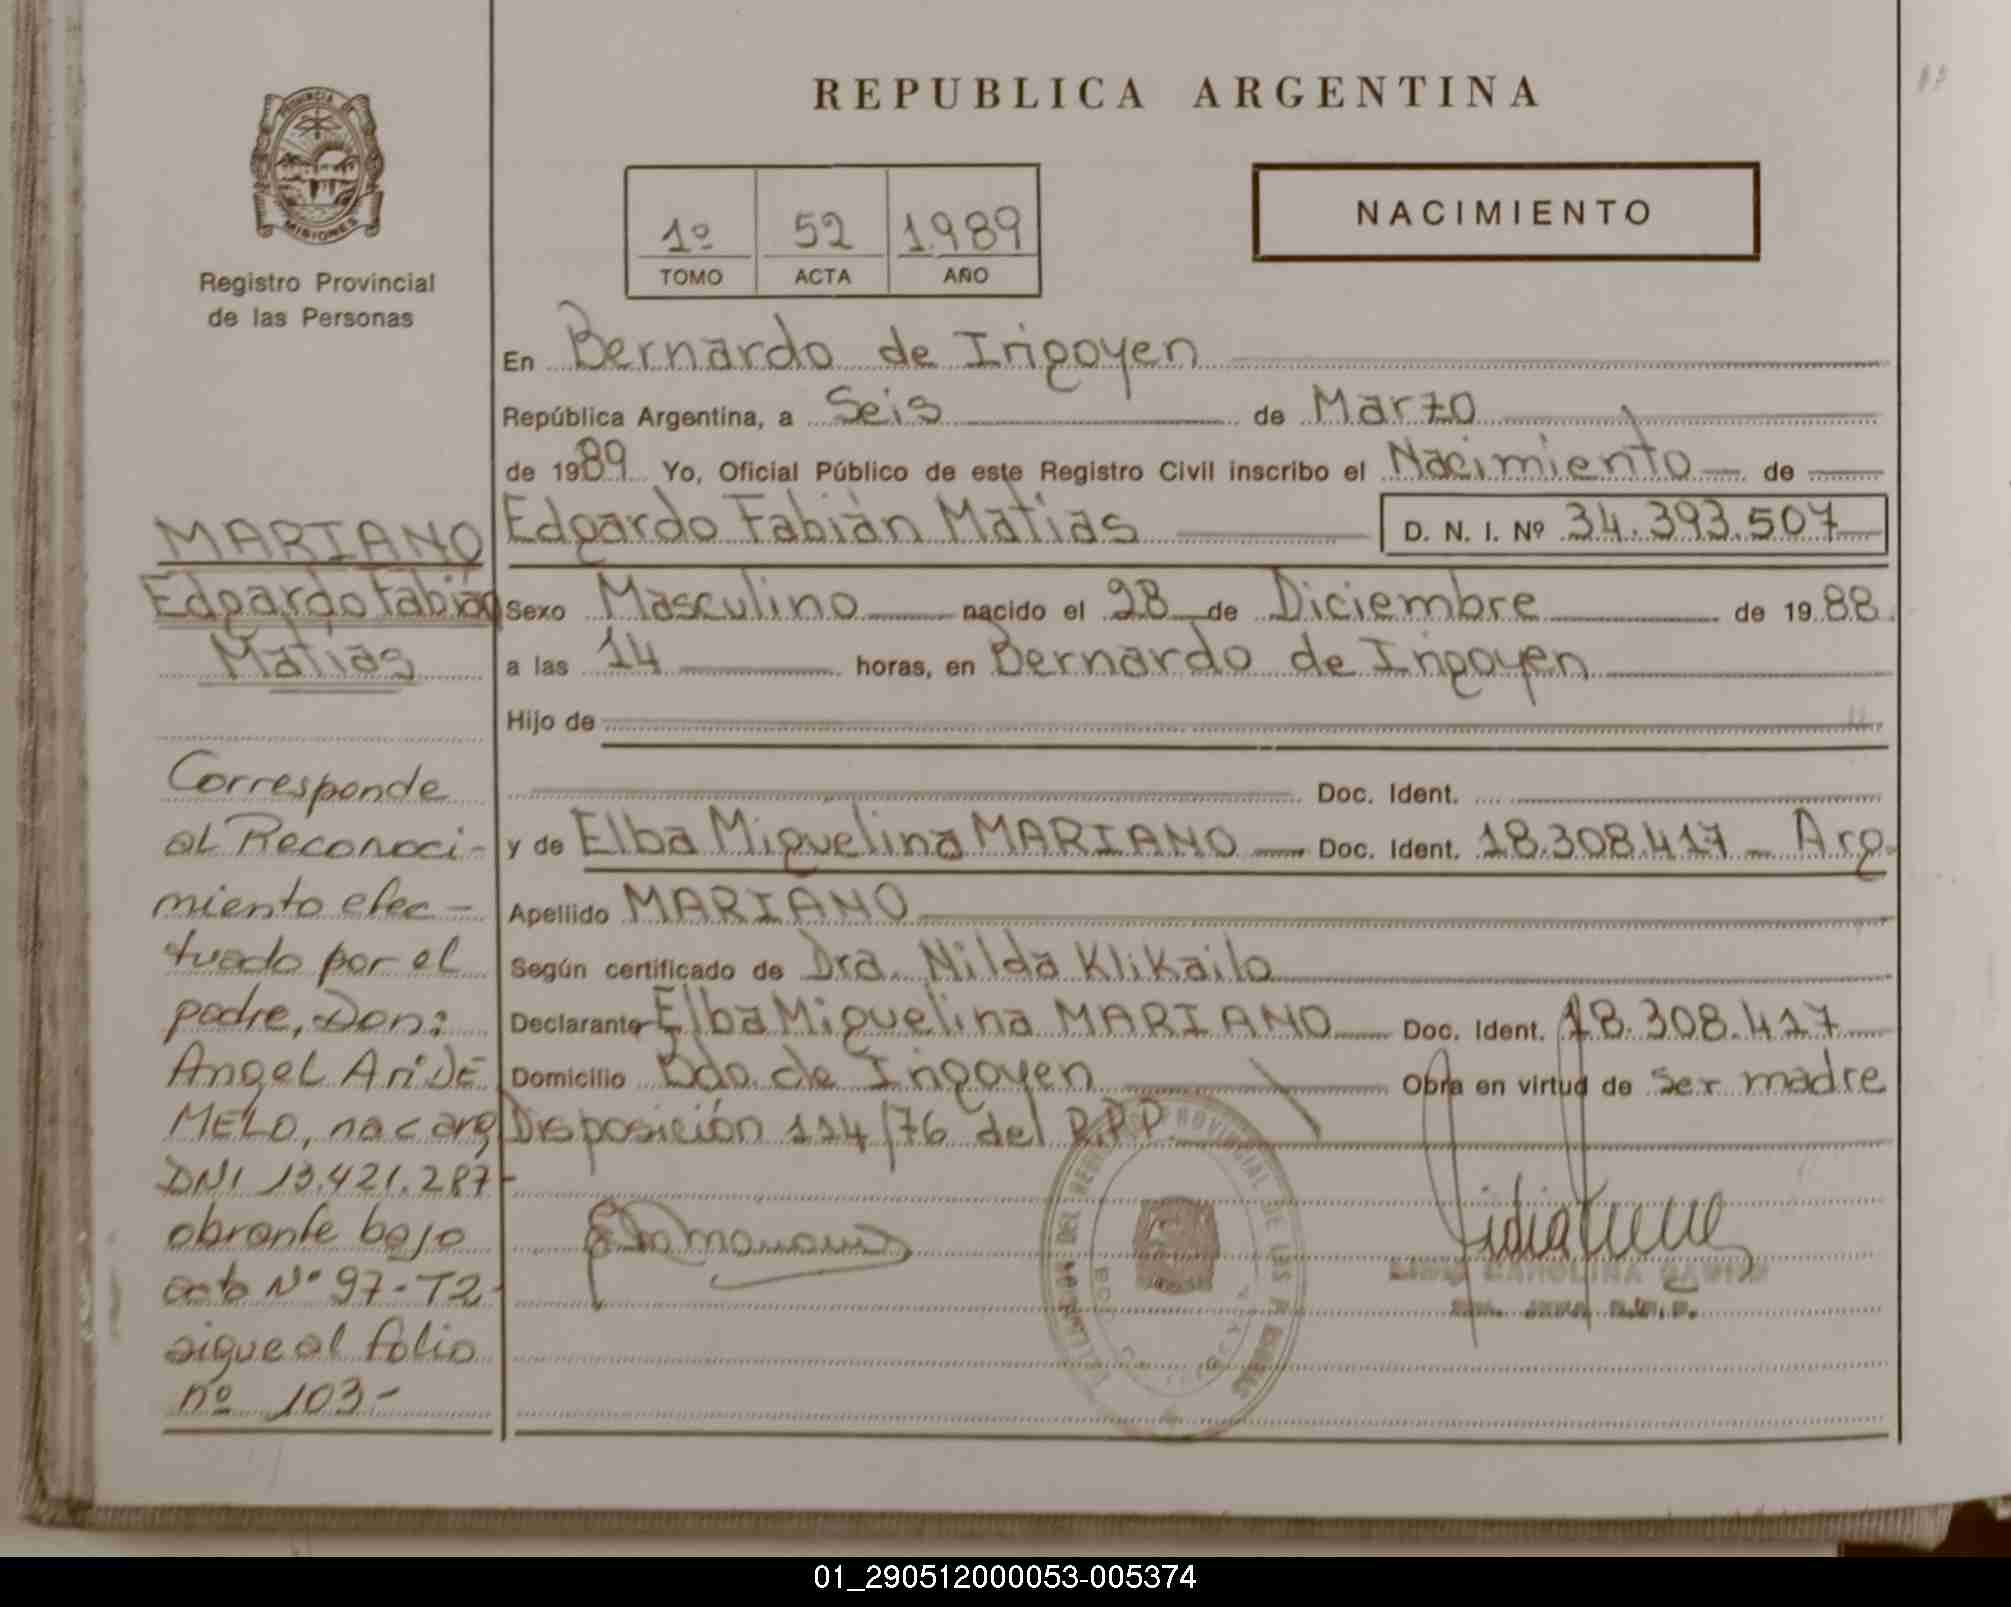 REPUBLICA ARGENTINA
PROVINCIA
MISIONES
Registro Provincial
de las Personas
1º 52 1.989
TOMO ACTA AÑO
NACIMIENTO
En Bernardo de Irigoyen
República Argentina, a Seis de Marzo
de 1989 Yo, Oficial Público de este Registro Civil inscribo el Nacimiento de
Edgardo Fabián Matias D. N. I. Nº 34.393.507
Sexo Masculino nacido el 28 de Diciembre de 1988
a las 14 horas, en Bernardo de Irigoyen
Hijo de
Doc. Ident.
y de Elba Miguelina MARIANO Doc. Ident. 18.308.417 - Arg.
Apellido MARIANO
Según certificado de Dra. Nilda Klikailo
Declarante Elba Miguelina MARIANO Doc. Ident. 18.308.417
Domicilio Bdo. de Irigoyen Obra en virtud de ser madre
Disposición 114/76 del R.P.P.
MARIANO
Edgardo Fabián
Matias
Corresponde
al Reconoci-
miento efec-
tuado por el
padre, Don:
Angel Ari DE
MELO, nac arg
DNI 13.421.287-
obrante bajo
acta Nº 97-T2-
sigue al folio
nº 103-
PROVINCIAL DE LAS
CAROLINA
01_290512000053-005374